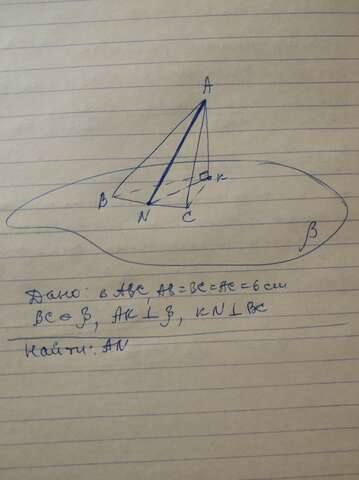 A
B
K
N
C
β
Дано: △ ABC, AB=BC=AC=6см
BC ∈ β, AK ⊥ β, KN ⊥ BC
Найти: AN